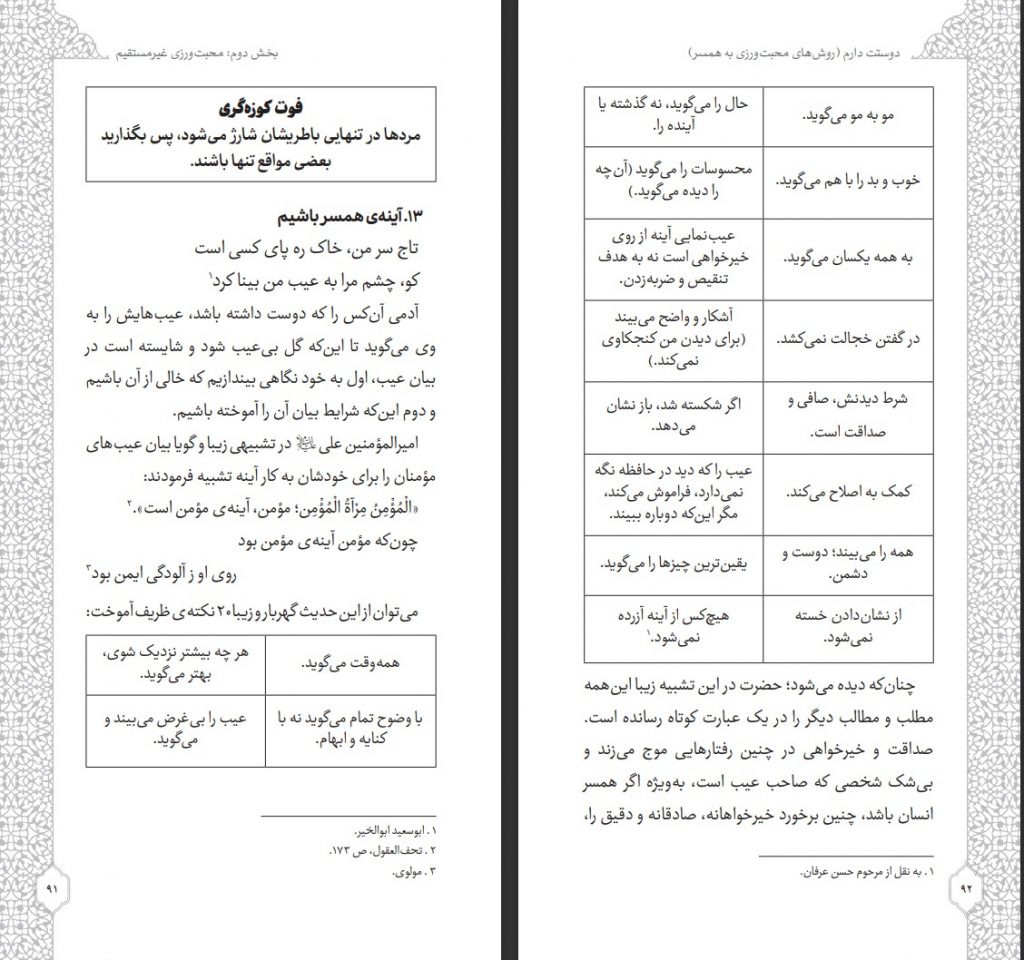 بخش دوم: محبت‌ورزی غیرمستقیم
فوت کوزه‌گری
مردها در تنهایی باطریشان شارژ می‌شود، پس بگذارید
بعضی مواقع تنها باشند.
۱۳. آینه‌ی همسر باشیم
تاج سر من، خاک ره پای کسی است
کو، چشم مرا به عیب من بینا کرد۱
آدمی آن‌کس را که دوست داشته باشد، عیب‌هایش را به
وی می‌گوید تا این‌که گل بی‌عیب شود و شایسته است در
بیان عیب، اول به خود نگاهی بیندازیم که خالی از آن باشیم
و دوم این‌که شرایط بیان آن را آموخته باشیم.
امیرالمؤمنین علی در تشبیهی زیبا و گویا بیان عیب‌های
مؤمنان را برای خودشان به کار آینه تشبیه فرمودند:
«الْمُؤْمِنُ مِرْآةُ الْمُؤْمِن؛ مؤمن، آینه‌ی مؤمن است».۲
چون‌که مؤمن آینه‌ی مؤمن بود
روی او ز آلودگی ایمن بود۳
می‌توان از این حدیث گهربار و زیبا ۲۰ نکته‌ی ظریف آموخت:
همه‌وقت می‌گوید.
هر چه بیشتر نزدیک شوی،
بهتر می‌گوید.
با وضوح تمام می‌گوید نه با
کنایه و ابهام.
عیب را بی‌غرض می‌بیند و
می‌گوید.
۱. ابوسعید ابوالخیر.
۲. تحف‌العقول، ص ۱۷۳.
۳. مولوی.
۹۱
دوستت دارم (روش‌های محبت‌ورزی به همسر)
مو به مو می‌گوید.
حال را می‌گوید، نه گذشته یا
آینده را.
خوب و بد را با هم می‌گوید.
محسوسات را می‌گوید (آن‌چه
را دیده می‌گوید.)
به همه یکسان می‌گوید.
عیب‌نمایی آینه از روی
خیرخواهی است نه به هدف
تنقیص و ضربه‌زدن.
در گفتن خجالت نمی‌کشد.
آشکار و واضح می‌بیند
(برای دیدن من کنجکاوی
نمی‌کند.)
شرط دیدنش، صافی و
صداقت است.
اگر شکسته شد، باز نشان
می‌دهد.
کمک به اصلاح می‌کند.
عیب را که دید در حافظه نگه
نمی‌دارد، فراموش می‌کند،
مگر این‌که دوباره ببیند.
همه را می‌بیند؛ دوست و
دشمن.
یقین‌ترین چیزها را می‌گوید.
از نشان‌دادن خسته
نمی‌شود.
هیچ‌کس از آینه آزرده
نمی‌شود.۱
چنان‌که دیده می‌شود؛ حضرت در این تشبیه زیبا این‌همه
مطلب و مطالب دیگر را در یک عبارت کوتاه رسانده است.
صداقت و خیرخواهی در چنین رفتارهایی موج می‌زند و
بی‌شک شخصی که صاحب عیب است، به‌ویژه اگر همسر
انسان باشد، چنین برخورد خیرخواهانه، صادقانه و دقیق را،
۱. به نقل از مرحوم حسن عرفان.
۹۲